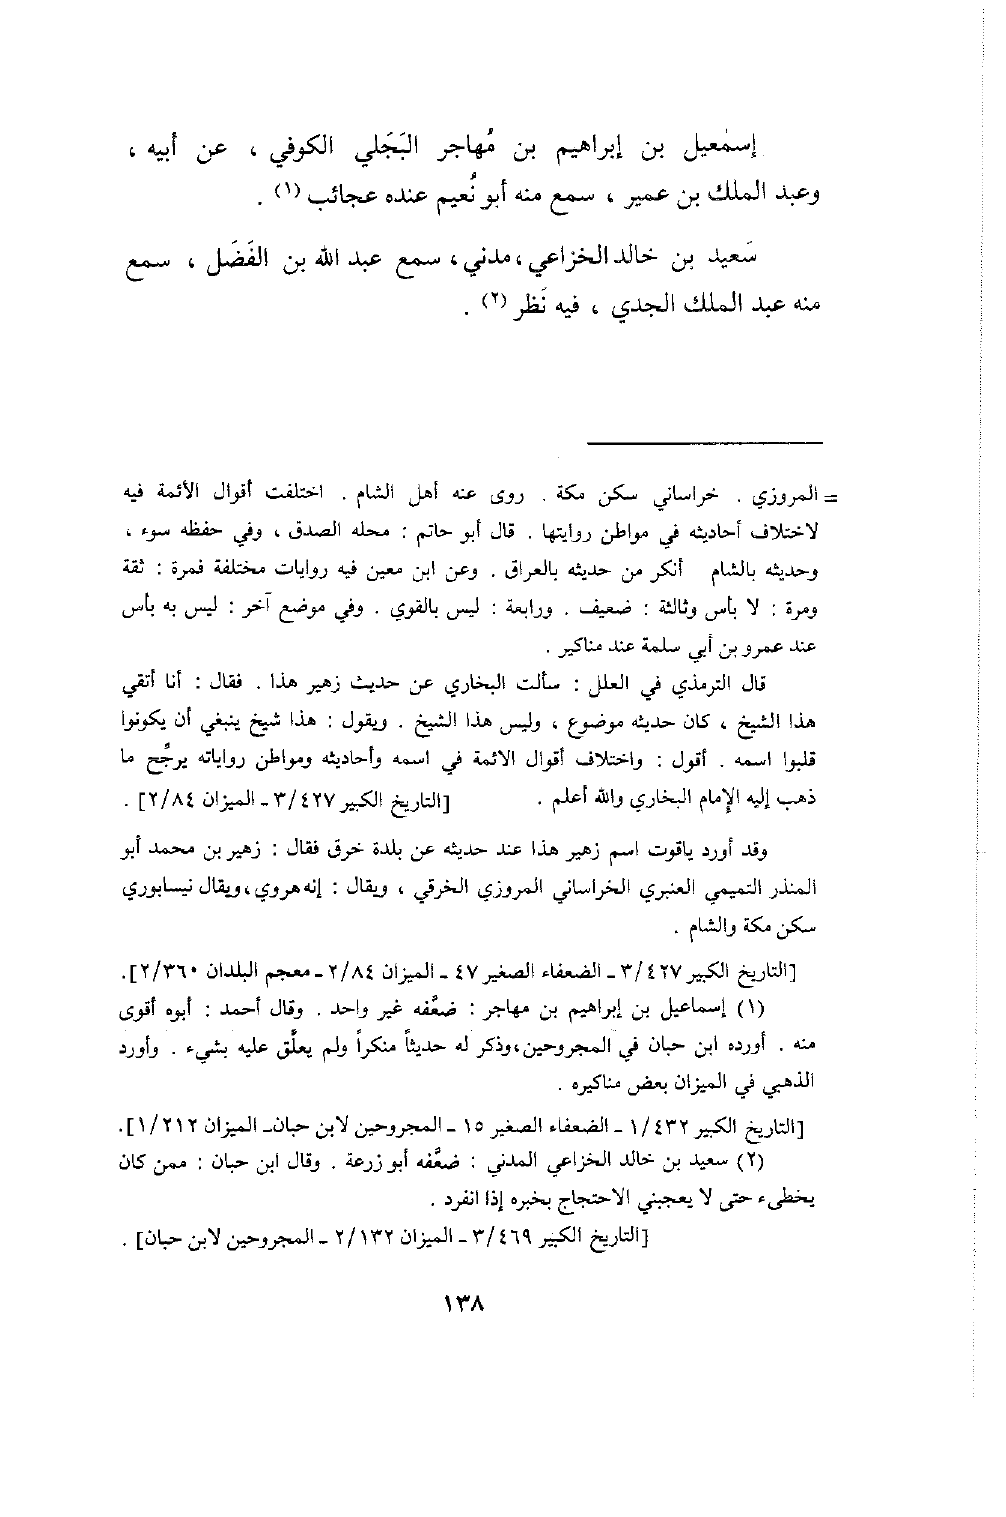 إسمٰعيل بن إبراهيم بن مُهاجر البَجَلي الكوفي ، عن أبيه ،
وعبد الملك بن عمير ، سمع منه أبو نُعيم عنده عجائب (١) .
سَعيد بن خالد الخزاعي ، مدني ، سمع عبد الله بن الفَضَل ، سمع
منه عبد الملك الجدي ، فيه نَظر (٢) .
= المروزي . خراساني سكن مكة . روى عنه أهل الشام . اختلفت أقوال الأئمة فيه
لاختلاف أحاديثه في مواطن روايتها . قال أبو حاتم : محله الصدق ، وفي حفظه سوء ،
وحديثه بالشام أنكر من حديثه بالعراق . وعن ابن معين فيه روايات مختلفة فمرة : ثقة
ومرة : لا بأس وثالثة : ضعيف . ورابعة : ليس بالقوي . وفي موضع آخر : ليس به بأس
عند عمرو بن أبي سلمة عند مناكير .
قال الترمذي في العلل : سألت البخاري عن حديث زهير هذا . فقال : أنا أتقي
هذا الشيخ ، كان حديثه موضوع ، وليس هذا الشيخ . ويقول : هذا شيخ ينبغي أن يكونوا
قلبوا اسمه . أقول : واختلاف أقوال الائمة في اسمه وأحاديثه ومواطن رواياته يرجِّح ما
ذهب إليه الإمام البخاري والله أعلم . [التاريخ الكبير ٣/٤٢٧ ـ الميزان ٢/٨٤] .
وقد أورد ياقوت اسم زهير هذا عند حديثه عن بلدة خرق فقال : زهير بن محمد أبو
المنذر التميمي العنبري الخراساني المروزي الخرقي ، ويقال : إنه هروي ، ويقال نيسابوري
سكن مكة والشام .
[التاريخ الكبير ٣/٤٢٧ ـ الضعفاء الصغير ٤٧ ـ الميزان ٢/٨٤ ـ معجم البلدان ٢/٣٦٠].
(١) إسماعيل بن إبراهيم بن مهاجر : ضعَّفه غير واحد . وقال أحمد : أبوه أقوى
منه . أورده ابن حبان في المجروحين ، وذكر له حديثاً منكراً ولم يعلَّق عليه بشيء . وأورد
الذهبي في الميزان بعض مناكيره .
[التاريخ الكبير ١/٤٣٢ ـ الضعفاء الصغير ١٥ ـ المجروحين لابن حبان ـ الميزان ١/٢١٢].
(٢) سعيد بن خالد الخزاعي المدني : ضعَّفه أبو زرعة . وقال ابن حبان : ممن كان
يخطىء حتى لا يعجبني الاحتجاج بخبره إذا انفرد .
[التاريخ الكبير ٣/٤٦٩ ـ الميزان ٢/١٣٢ ـ المجروحين لابن حبان] .
١٣٨